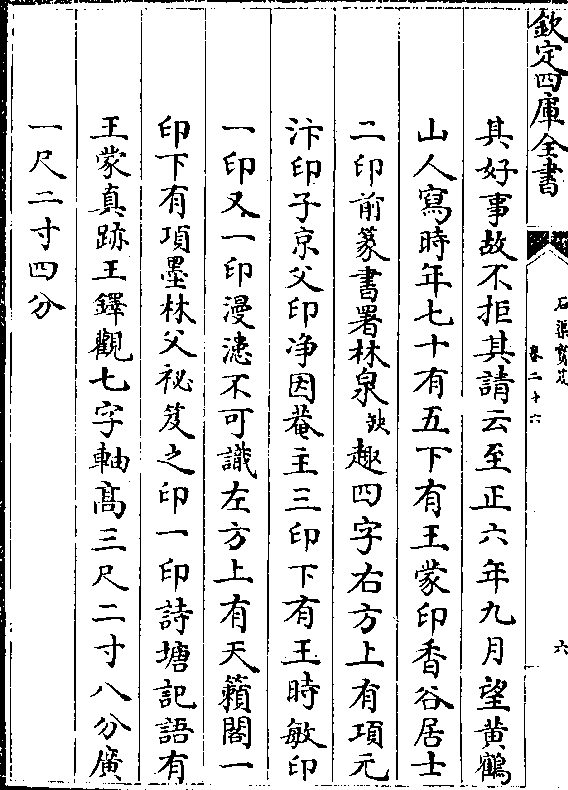 欽定四庫全書
石渠寳笈
卷二十六
六
其好事故不拒其請云至正六年九月望黄鶴
山人寫時年七十有五下有王蒙印香谷居士
二印前篆書署林泉缺趣四字右方上有項元
汴印子京父印净因菴主三印下有王時敏印
一印又一印漫漶不可識左方上有天籟閣一
印下有項墨林父祕笈之印一印詩塘記語有
王蒙真跡王鐸觀七字軸髙三尺二寸八分廣
一尺二寸四分